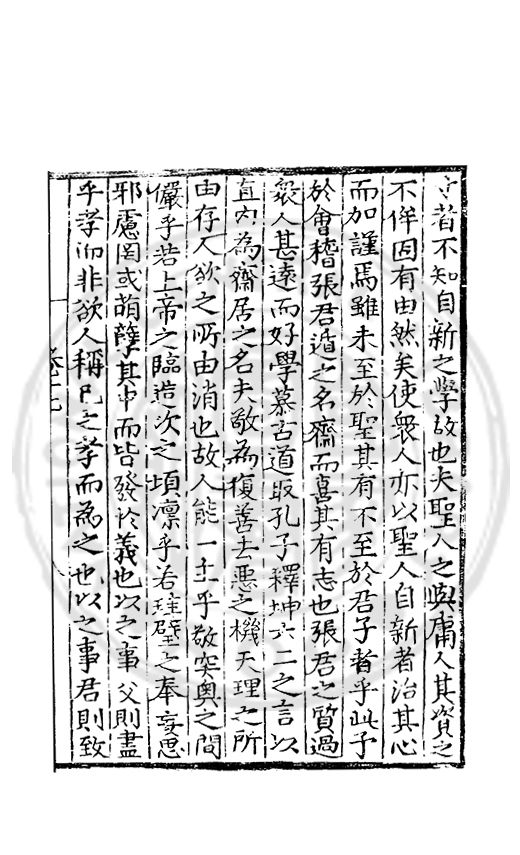 者不知自新之學故也夫聖人之與庸人其資之
不侔固有由然矣使衆人亦以聖人自新者治其心
而加謹焉雖未至於聖其有不至於君子者乎此予
於會稽張君遁之名齋而喜其有志也張君之質過
衆人甚遠而好學慕古道取孔子釋坤六二之言以
直内為齋居之名夫敬為復善去惡之機天理之所
由存人欲之所由消也故人能一主乎敬突奧之間
儼乎若上帝之臨造次之頃凛乎若璡璧之奉妄思
邪慮罔或萌孽其中而皆發於義也以之事父則盡
乎孝而非欲人稱已之孝而為之也以之事君則致
卷十七